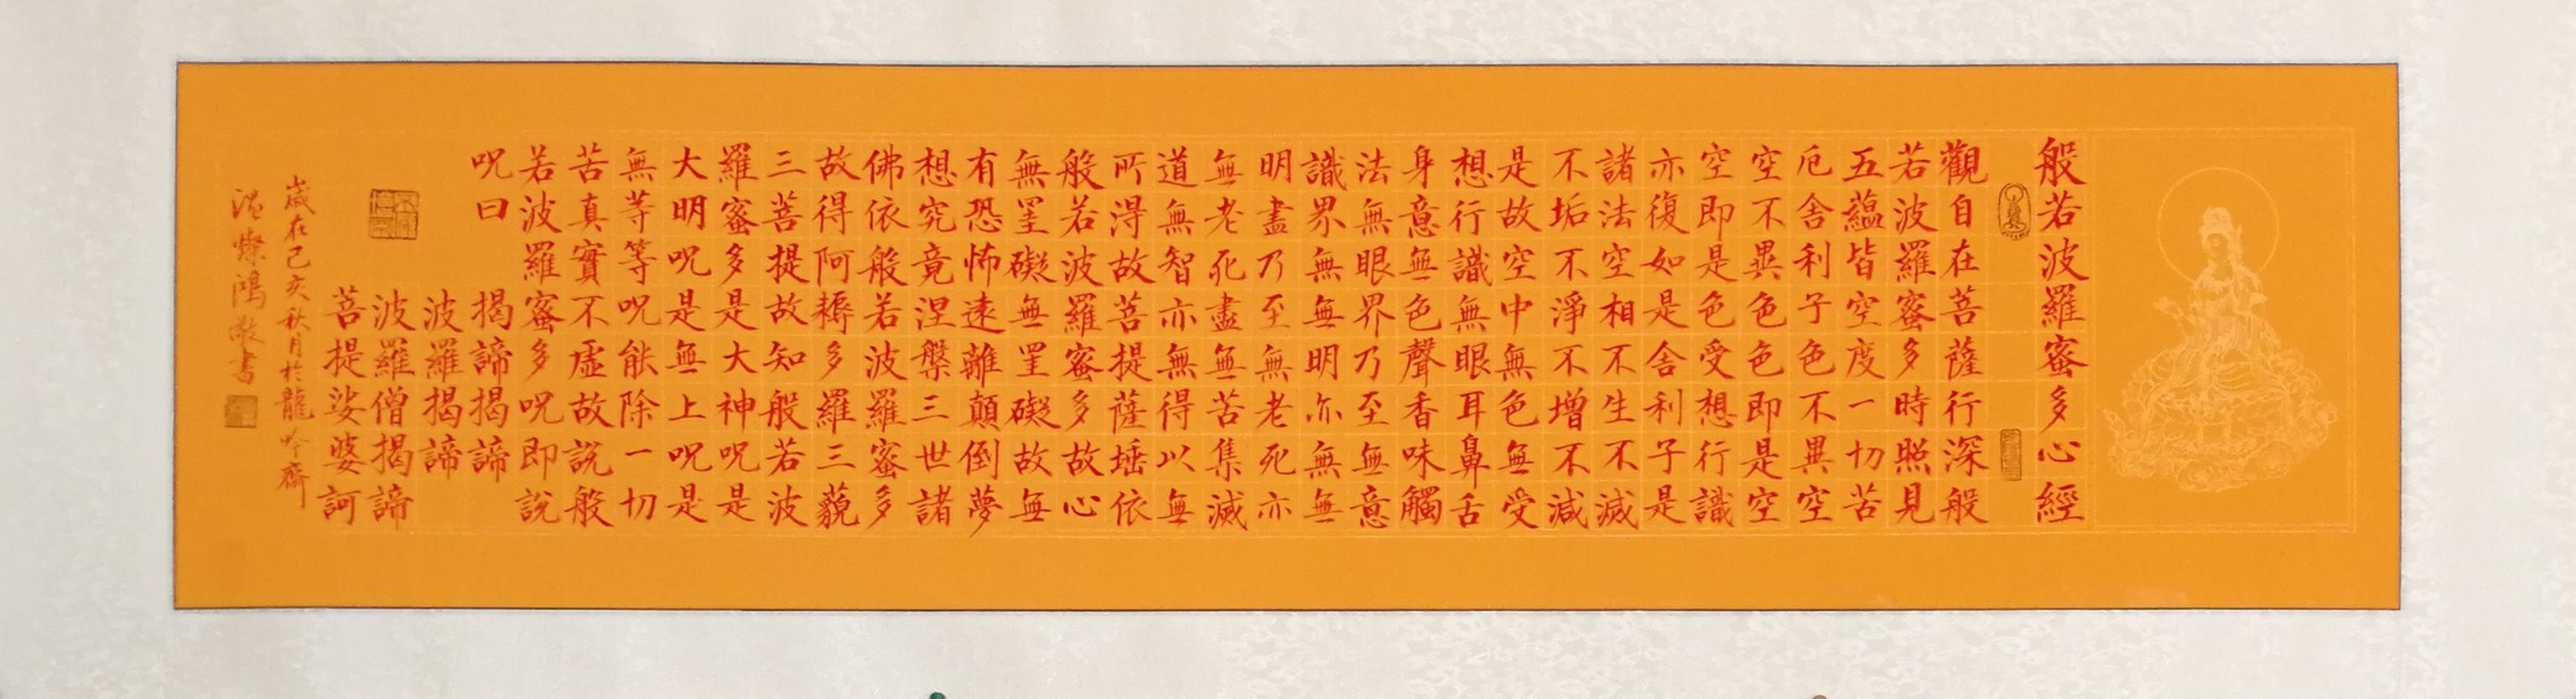 般若波羅蜜多心經
觀自在菩薩行深般
若波羅蜜多時照見
五蘊皆空度一切苦
厄舍利子色不異空
空不異色色即是空
空即是色受想行識
亦復如是舍利子是
諸法空相不生不滅
不垢不淨不增不減
是故空中無色無受
想行識無眼耳鼻舌
身意無色聲香味觸
法無眼界乃至無意
識界無無明亦無無
明盡乃至無老死亦
無老死盡無苦集滅
道無智亦無得以無
所得故菩提薩埵依
般若波羅蜜多故心
無罣礙無罣礙故無
有恐怖遠離顛倒夢
想究竟涅槃三世諸
佛依般若波羅蜜多
故得阿耨多羅三藐
三菩提故知般若波
羅蜜多是大神呪是
大明呪是無上呪是
無等等呪能除一切
苦真實不虛故說般
若波羅蜜多呪即說
呪曰 揭諦揭諦
波羅揭諦
波羅僧揭諦
菩提娑婆訶
歲在己亥秋月於龍吟齋
溫燦鴻敬書